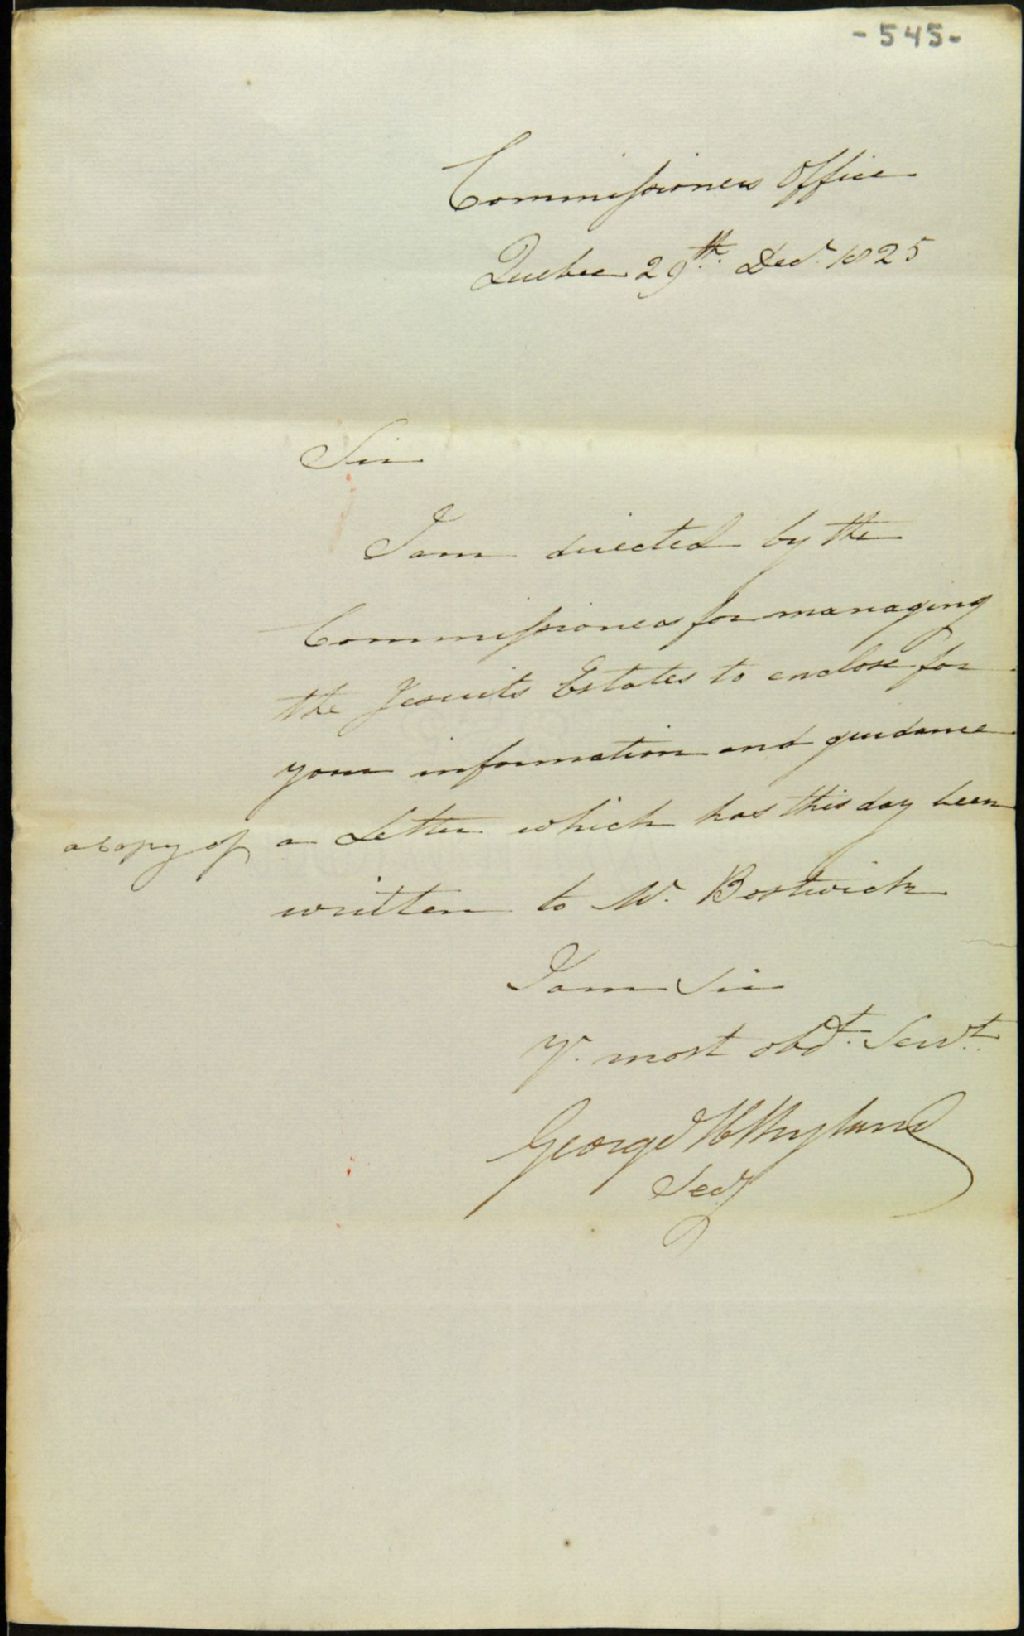 -545-
Commissioners Office
Quebec 29th. Decr. 1825
Sir
I am directed by the
Commissioners for managing
the Jesuits Estates to enclose for
your information and guidance
a copy of a Letter which has this day been
written to Mr. Bostwick
I am Sir
Yr. most obdt. Servt.
George H Ryland
Secy